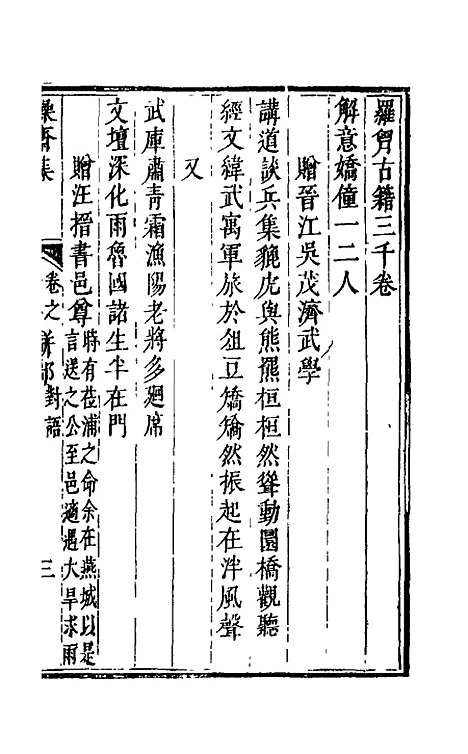 羅胷古籍三千卷
解意嬌僮一二人
贈晉江吳茂濟武學
講道談兵集貔虎與熊羆桓桓然聳動圜橋觀聽
經文緯武寓軍旅於俎豆矯矯然振起在泮風聲
又
武庫肅青霜漁陽老將多廻席
文壇深化雨魯國諸生半在門
贈汪搢書邑尊時有莅浦之命余在燕城以是
言送之公至邑適遇大旱求雨
集
卷之 對語
三